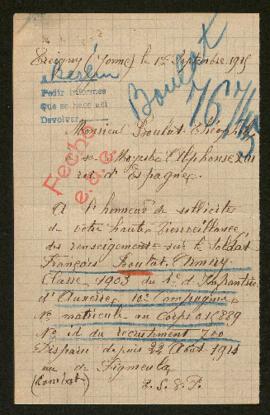 Treigny (Yonne) le 1er Septembre 1915
a Berlin
Pedir informes
Que se haga así
Devolver
Boutat
76745
Fecho
e.a.c.
Monsieur Boutat Théophile
Sa Majesté Alphonse XIII
roi d'Espagne
A l'honneur de solliciter
de votre haute bienveillance
des renseignements sur le soldat
Français Boutat Amary
Classe 1903 du 4e d'Infanterie
d'Auxerre 10e Compagnie
No matricule au Corps
No id du recrutement 700
Disparu depuis 22 Août 1914
(Combat)
T.S.V.P.